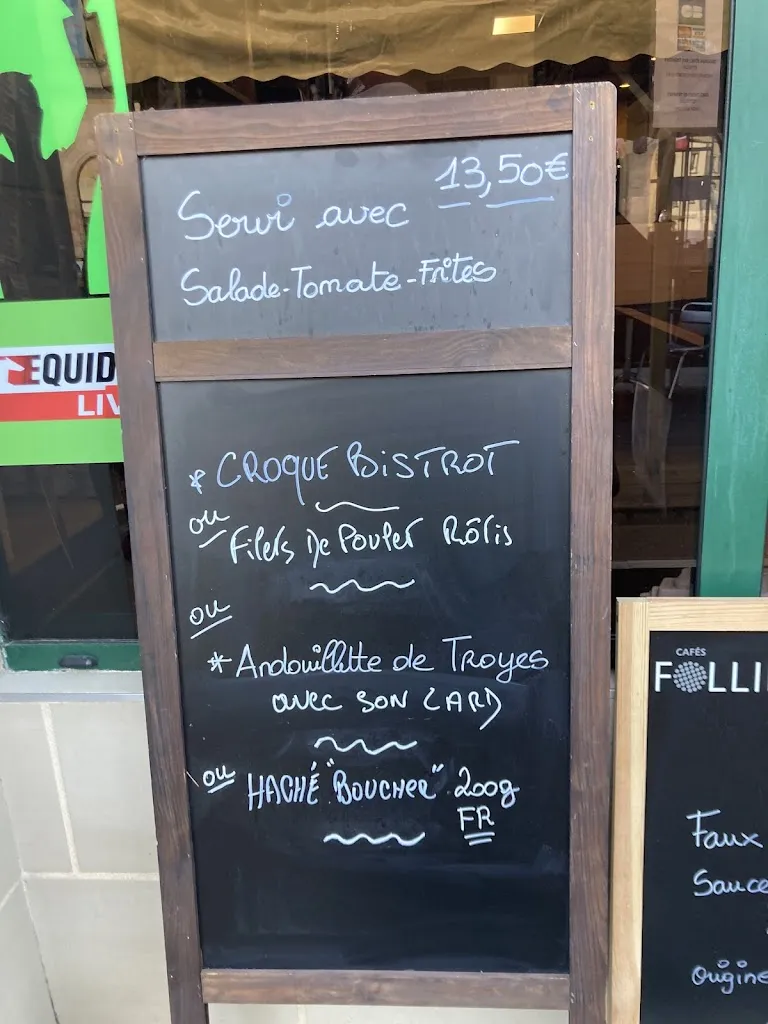 13,50€
Servi avec
Salade-Tomate-Frites
EQUID
LIV
* CROQUE BISTROT
ou
Filets De Poulet Rôtis
ou
* Andouillette de Troyes
avec SON LARD
ou HACHÉ "BOUCHER" 200g
FR
CAFÉS
FOLLI
Faux
Sauce
Origine